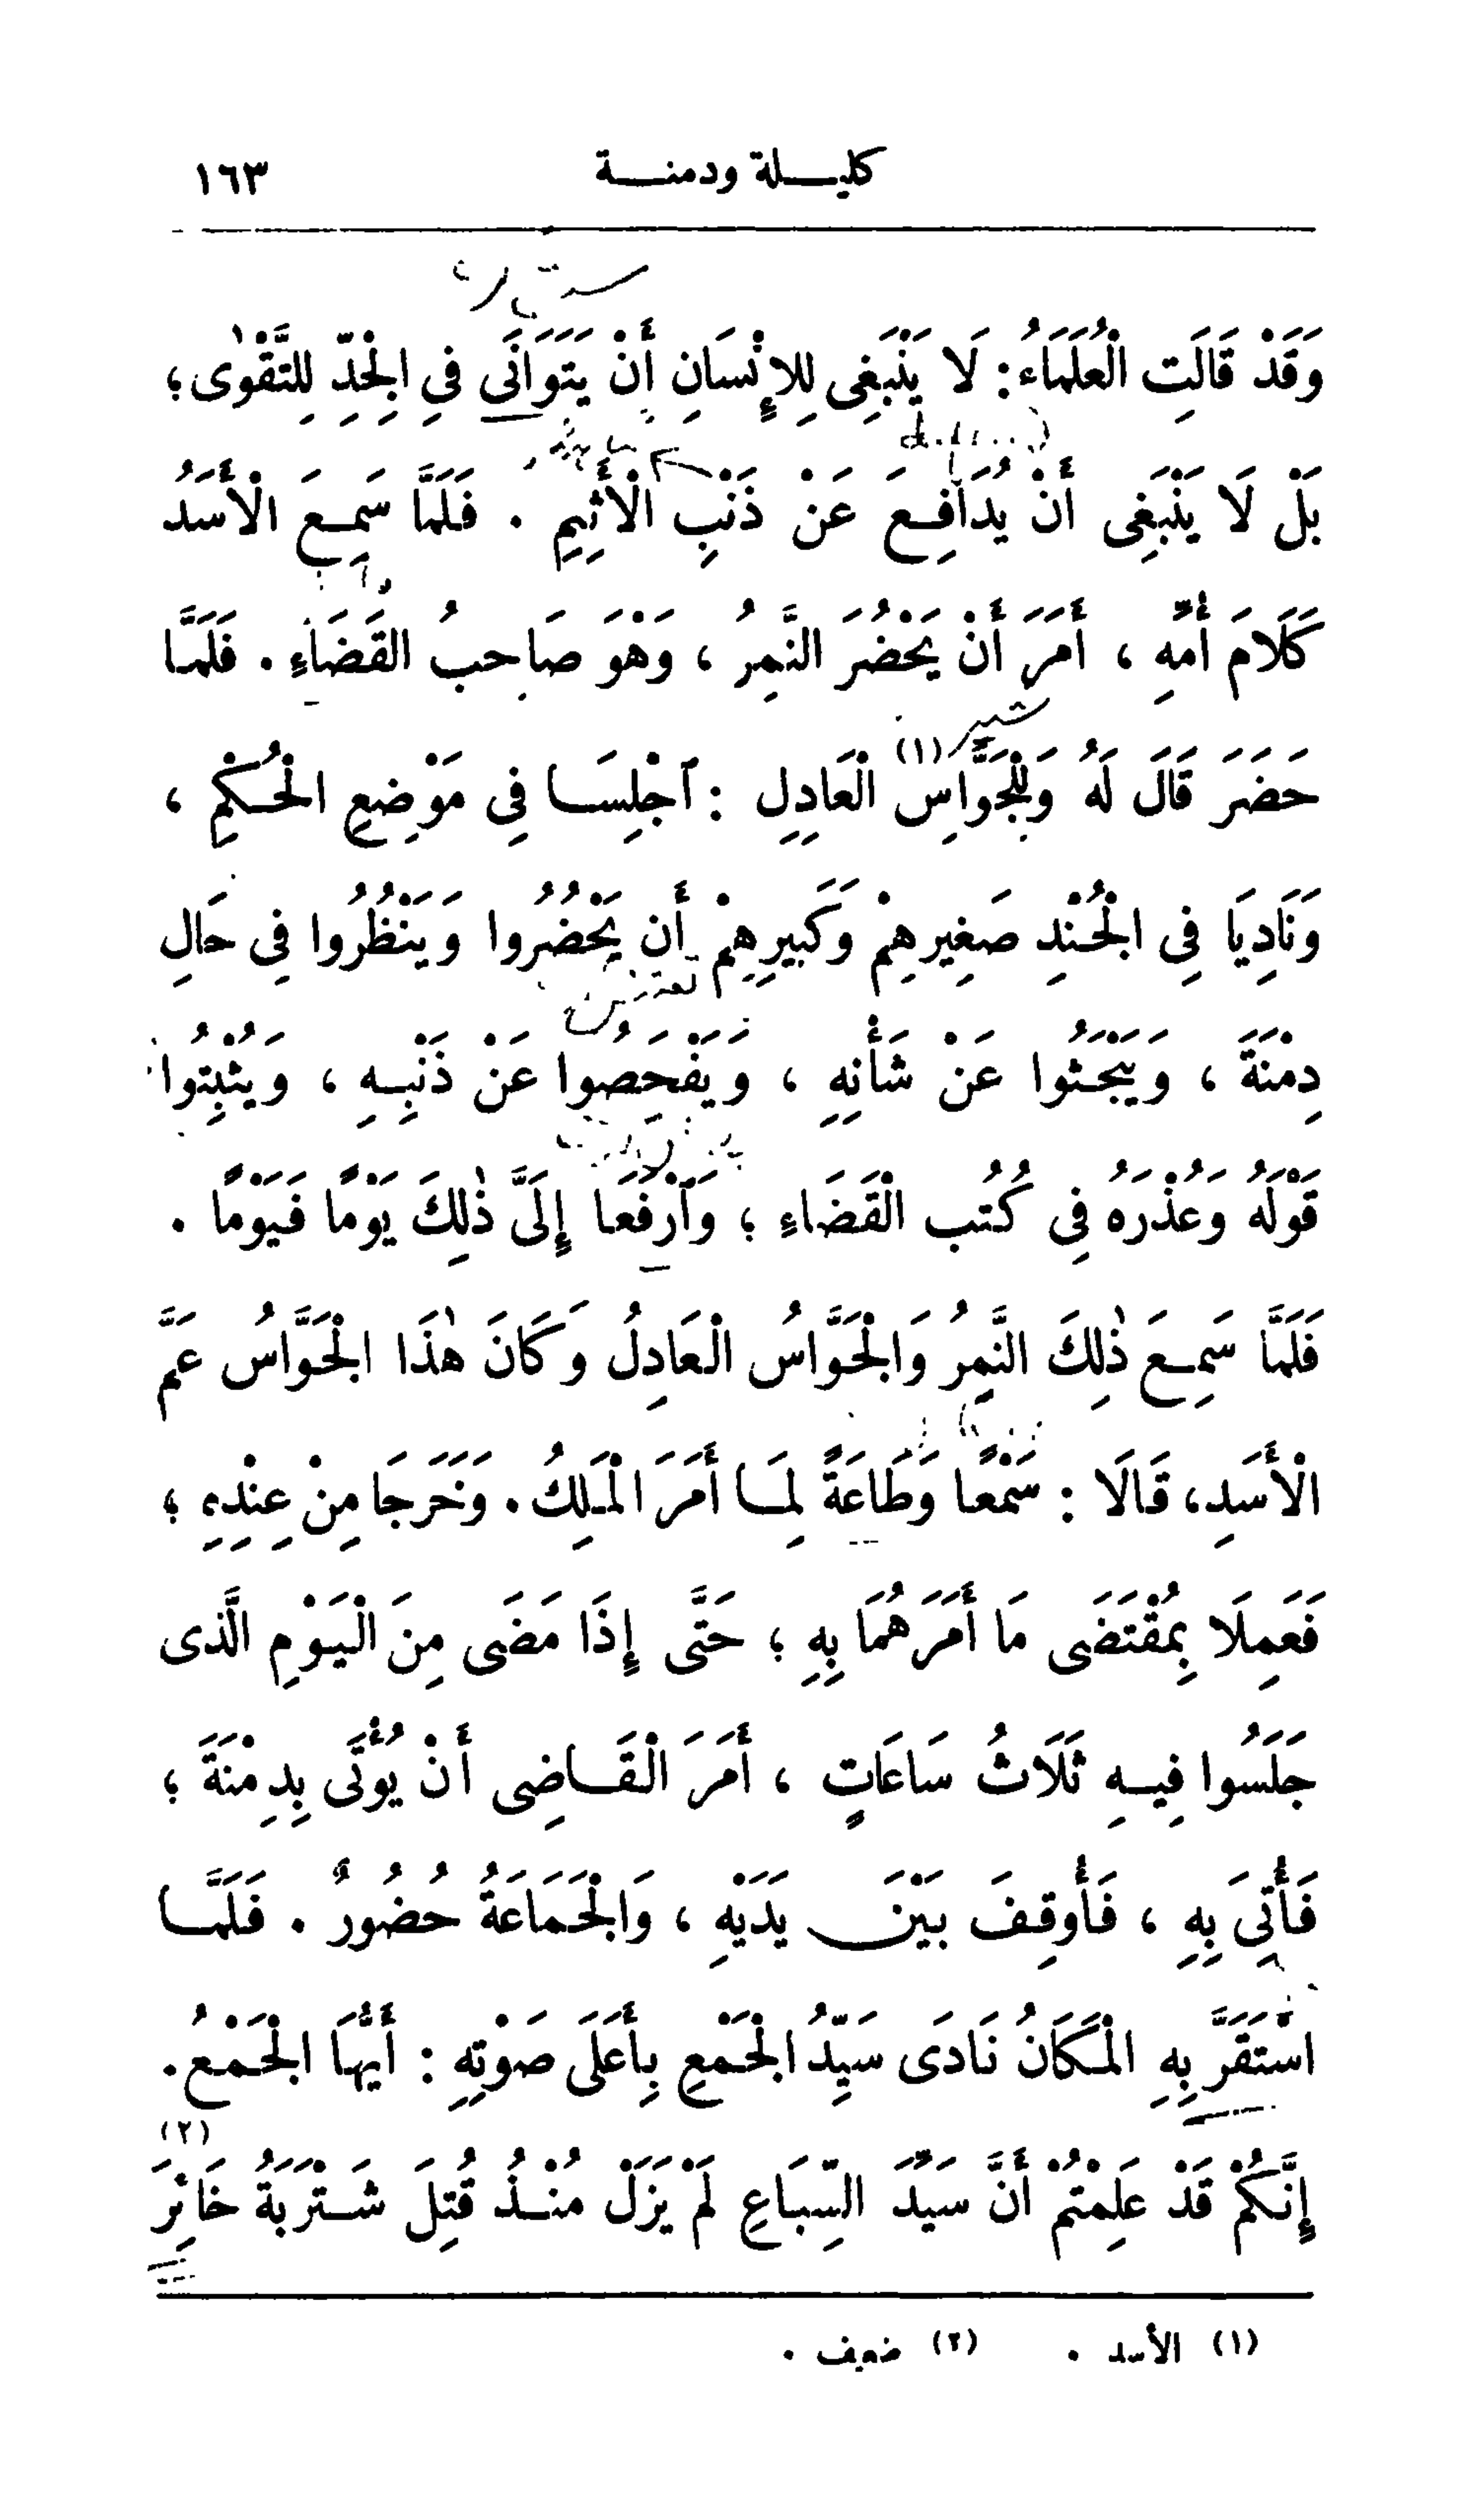 كليلة ودمنة ١٦٣
وَقَدْ قَالَتِ الْعُلَمَاءُ: لَا يَنْبَغِى لِلإِنْسَانِ أَنْ يَتَوَانَى فِي الْجِدِّ لِلتَّقْوٰى؛
بَلْ لَا يَنْبَغِى أَنْ يُدَافِعَ عَنْ ذَنْبِ الْأَثِيمِ . فَلَمَّا سَمِعَ الْأَسَدُ
كَلَامَ أُمِّهِ ، أَمَرَ أَنْ يَحْضُرَ النَّمِرُ ، وَهْوَ صَاحِبُ القَضَاءِ . فَلَمَّا
حَضَرَ قَالَ لَهُ وَلِلْجَوَّاسِ (١) الْعَادِلِ : اَجْلِسَا فِى مَوْضِعِ الْحُكْمِ ،
وَنَادِيَا فِى الْجُنْدِ صَغِيرِهِمْ وَكَبِيرِهِمْ أَن يَحْضُرُوا وَيَنْظُرُوا فِى حَالِ
دِمْنَةَ ، وَيَبْحَثُوا عَنْ شَأْنِهِ ، وَيَفْحَصُوا عَنْ ذَنْبِهِ ، وَيُثْبِتُوا
قَوْلَهُ وَعُذْرَهُ فِى كُتُبِ الْقَضَاءِ ؛ وَاَرْفَعَا إِلَىَّ ذٰلِكَ يَوْمًا فَيَوْمًا .
فَلَمَّا سَمِعَ ذٰلِكَ النَّمِرُ وَالْجَوَّاسُ الْعَادِلُ وَكَانَ هٰذَا الْجَوَّاسُ عَمَّ
الْأَسَدِ، قَالَا : سَمْعًا وَطَاعَةً لِمَا أَمَرَ الْمَلِكُ . وَخَرَجَا مِنْ عِنْدِهِ ؛
فَعَمِلَا بِمُقْتَضَى مَا أَمَرَهُمَا بِهِ ؛ حَتَّى إِذَا مَضَى مِنَ الْيَوْمِ الَّذى
جَلَسُوا فِيهِ ثَلَاثُ سَاعَاتٍ ، أَمَرَ الْقَاضِى أَنْ يُؤْتَى بِدِمْنَةَ ؛
فَأُتِىَ بِهِ ، فَأُوقِفَ بَيْنَ يَدَيْهِ ، وَالْجَمَاعَةُ حُضُورٌ . فَلَمَّا
اسْتَقَرَّ بِهِ الْمَكَانُ نَادَى سَيِّدُ الْجَمْعِ بِأَعْلَى صَوْتِهِ : أَيُّهَا الْجَمْعُ .
إِنَّكُمْ قَدْ عَلِمْتُمْ أَنَّ سَيِّدَ السِّبَاعِ لَمْ يَزَلْ مُنْذُ قُتِلَ شَتْرَبَةُ خَاثِرَ (٢)
(١) الأسد . (٢) ضعيف .